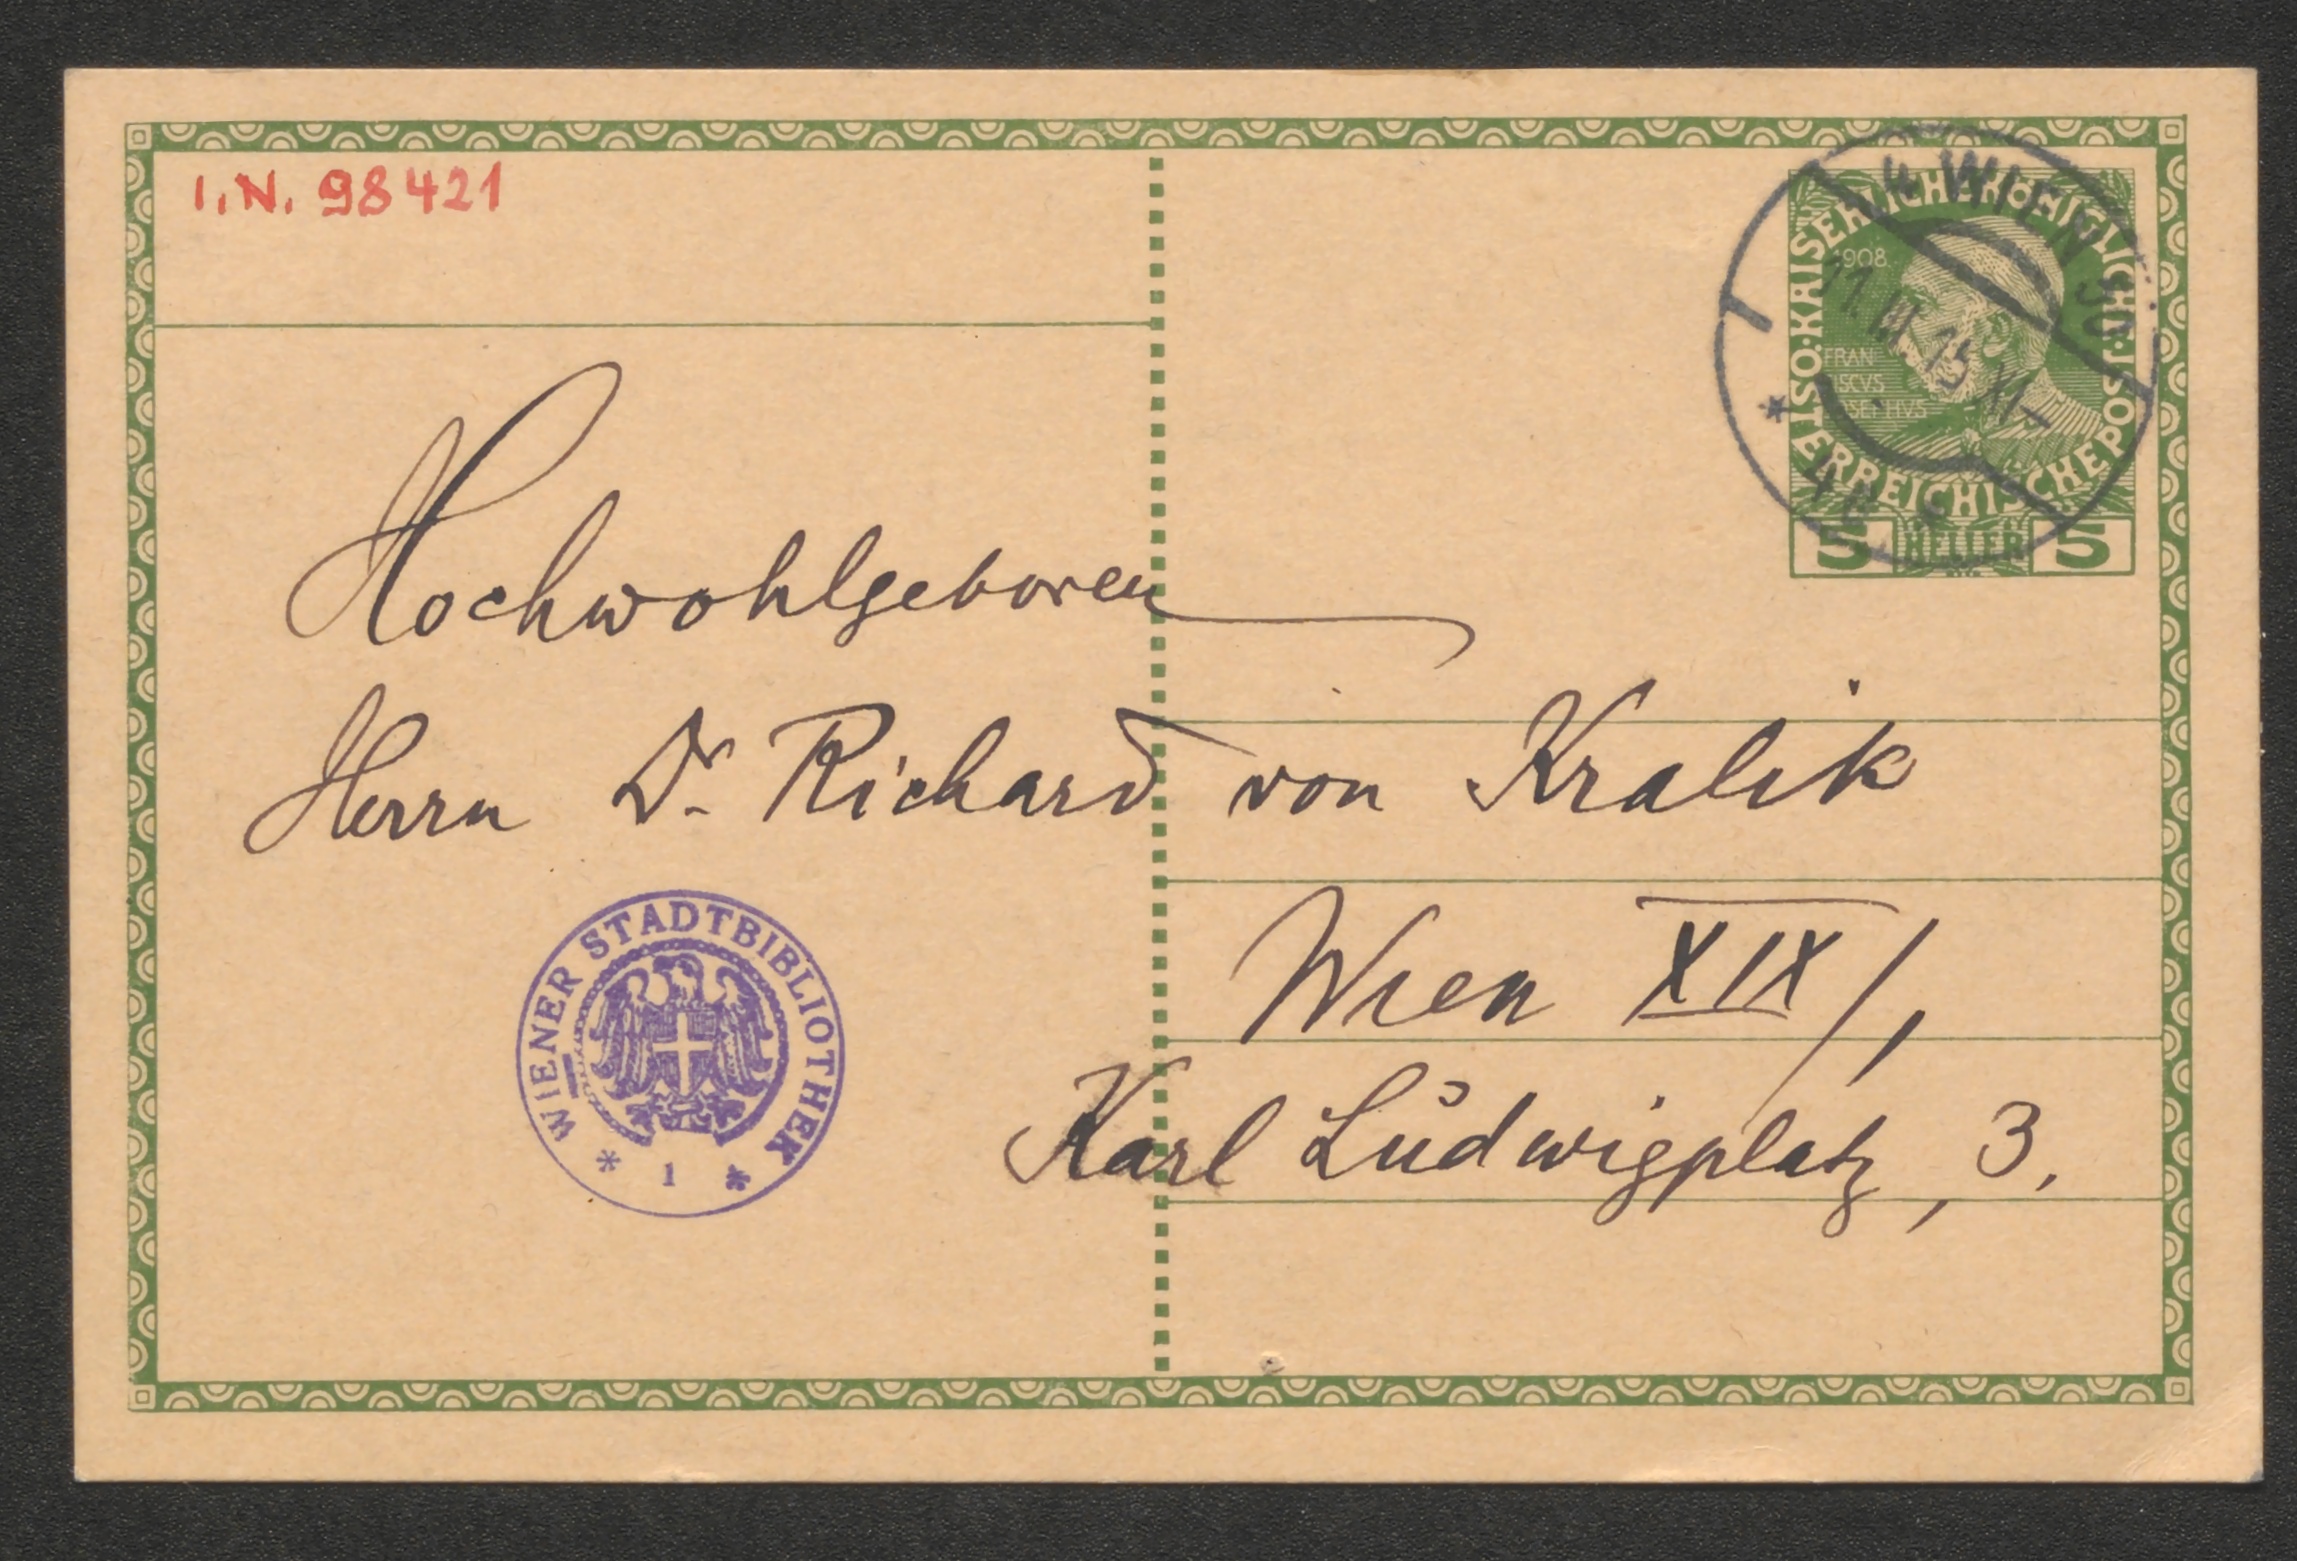 I.N. 98421
4 WIEN 50
11. III. 15 XI-
* 4c
KAISERLICHE KÖNIGLICHE
ÖSTERREICHISCHE POST
1908
FRAN
ISCVS
SEPHVS
5 HELLER 5
Hochwohlgeboren
Herrn Dr. Richard von Kralik
Wien XIX/1,
Karl Ludwigplatz, 3.
WIENER STADTBIBLIOTHEK
* 1 *